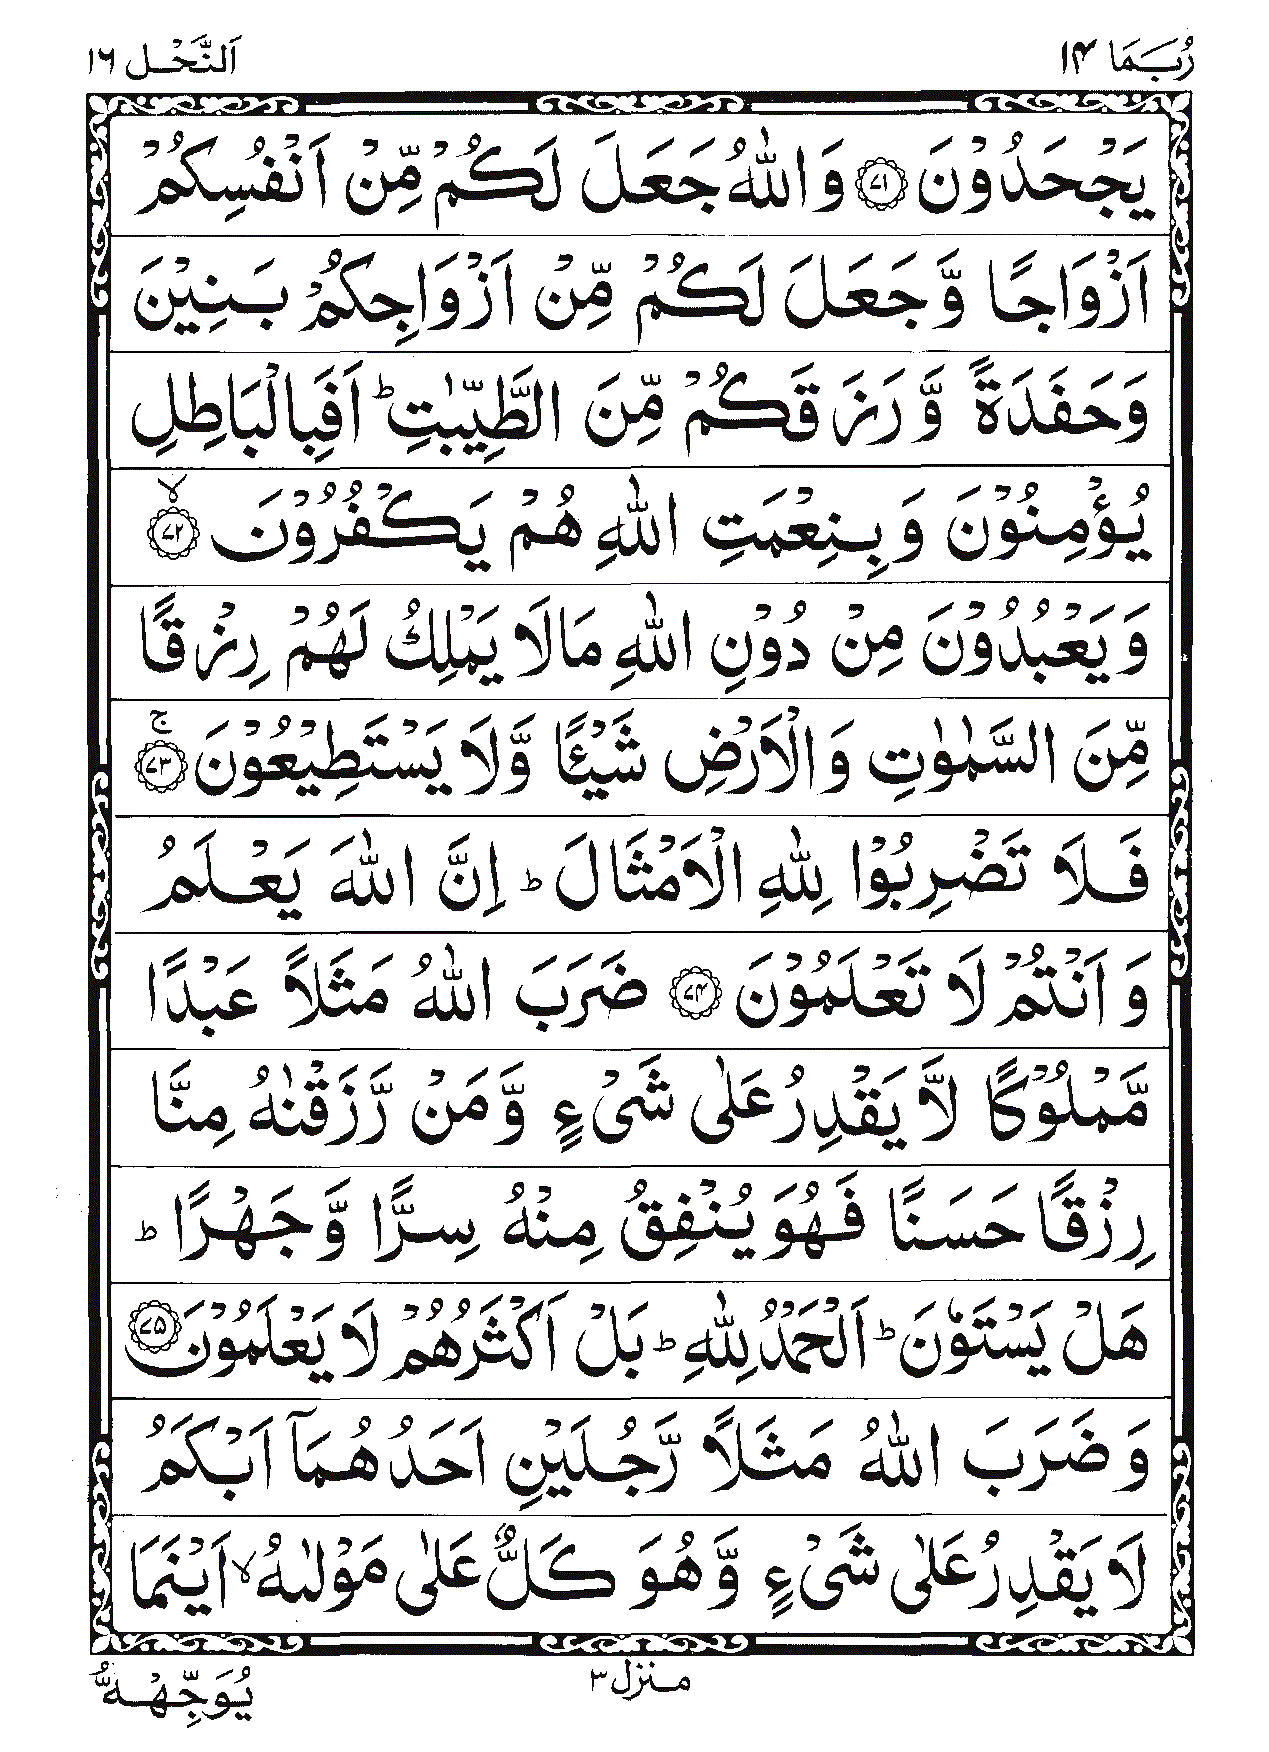 رُبَمَا ١٤ اَلنَّحْل ١٦
يَجْحَدُوْنَ ﴿٧١﴾ وَاللّٰهُ جَعَلَ لَكُمْ مِّنْ اَنْفُسِكُمْ
اَزْوَاجًا وَّجَعَلَ لَكُمْ مِّنْ اَزْوَاجِكُمْ بَنِيْنَ
وَحَفَدَةً وَّرَزَقَكُمْ مِّنَ الطَّيِّبٰتِ ؕ اَفَبِالْبَاطِلِ
يُؤْمِنُوْنَ وَبِنِعْمَتِ اللّٰهِ هُمْ يَكْفُرُوْنَ ﴿٧٢﴾ ۙ
وَيَعْبُدُوْنَ مِنْ دُوْنِ اللّٰهِ مَالَا يَمْلِكُ لَهُمْ رِزْقًا
مِّنَ السَّمٰوٰتِ وَالْاَرْضِ شَيْـًٔا وَّلَا يَسْتَطِيْعُوْنَ ﴿٧٣﴾ ۚ
فَلَا تَضْرِبُوْا لِلّٰهِ الْاَمْثَالَ ؕ اِنَّ اللّٰهَ يَعْلَمُ
وَاَنْتُمْ لَا تَعْلَمُوْنَ ﴿٧٤﴾ ضَرَبَ اللّٰهُ مَثَلًا عَبْدًا
مَّمْلُوْكًا لَّا يَقْدِرُ عَلٰى شَىْءٍ وَّمَنْ رَّزَقْنٰهُ مِنَّا
رِزْقًا حَسَنًا فَهُوَ يُنْفِقُ مِنْهُ سِرًّا وَّجَهْرًا ؕ
هَلْ يَسْتَوٗنَ ؕ اَلْحَمْدُ لِلّٰهِ ؕ بَلْ اَكْثَرُهُمْ لَا يَعْلَمُوْنَ ﴿٧٥﴾
وَضَرَبَ اللّٰهُ مَثَلًا رَّجُلَيْنِ اَحَدُهُمَاۤ اَبْكَمُ
لَا يَقْدِرُ عَلٰى شَىْءٍ وَّهُوَ كَلٌّ عَلٰى مَوْلٰىهُ ۙ اَيْنَمَا
منزل ٣
يُوَجِّهْهُّ